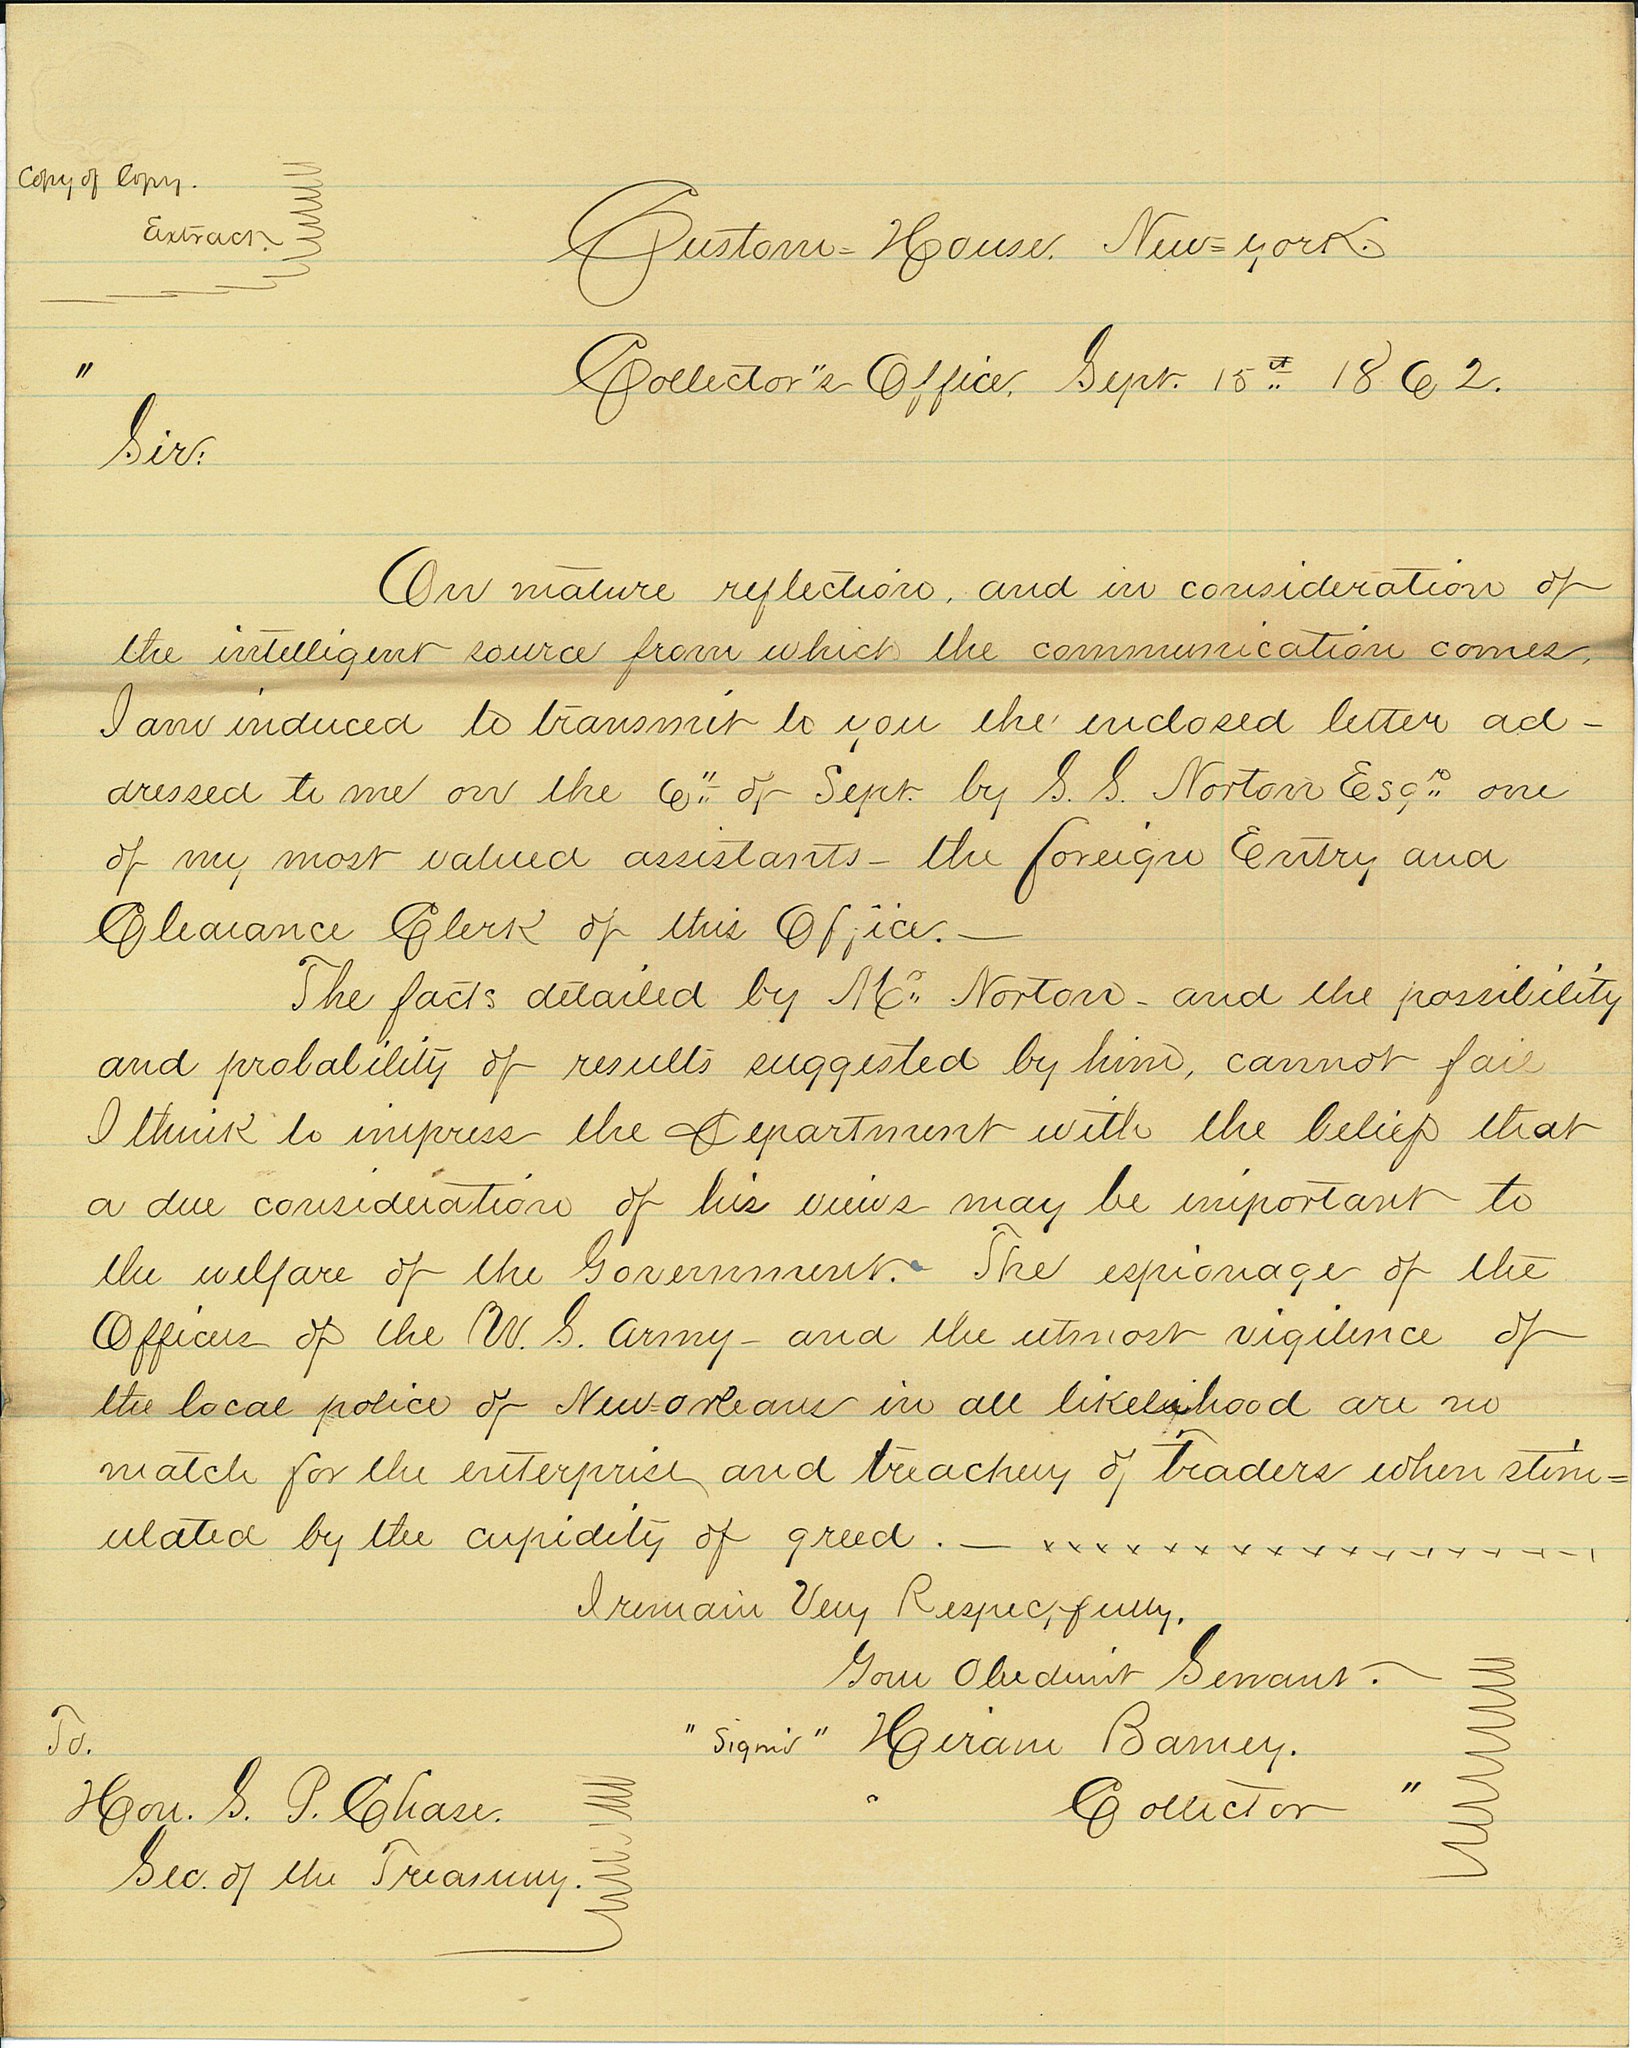 Copy of Copy.
Extract.
Custom=House. New=york.
"
Collector"s Office, Sept. 15th 1862.
Sir:
On mature reflection, and in consideration of
the intelligent source from which the communication comes,
I am induced to transmit to you the enclosed letter ad-
dressed to me on the 6" of Sept. by S. S. Norton Esqr. one
of my most valued assistants - the foreign Entry and
Clearance Clerk of this Office. —
The facts detailed by Mr. Norton - and the possibility
and probability of results suggested by him, cannot fail
I think to impress the Department with the belief that
a due consideration of his views may be important to
the welfare of the Government. - The espionage of the
Officers of the U. S. Army - and the utmost vigilence of
the local police of New=orleans in all likelihood are no
match for the enterprise and treachery of Traders when stim=
ulated by the cupidity of greed. — xxxxxxxxxxxxxxxx
I remain Very Respectfully.
Your Obedient Servant.
To.
"Signed" Hiram Barney.
Hon. S. P. Chase.
" Collector "
Sec. of the Treasury.